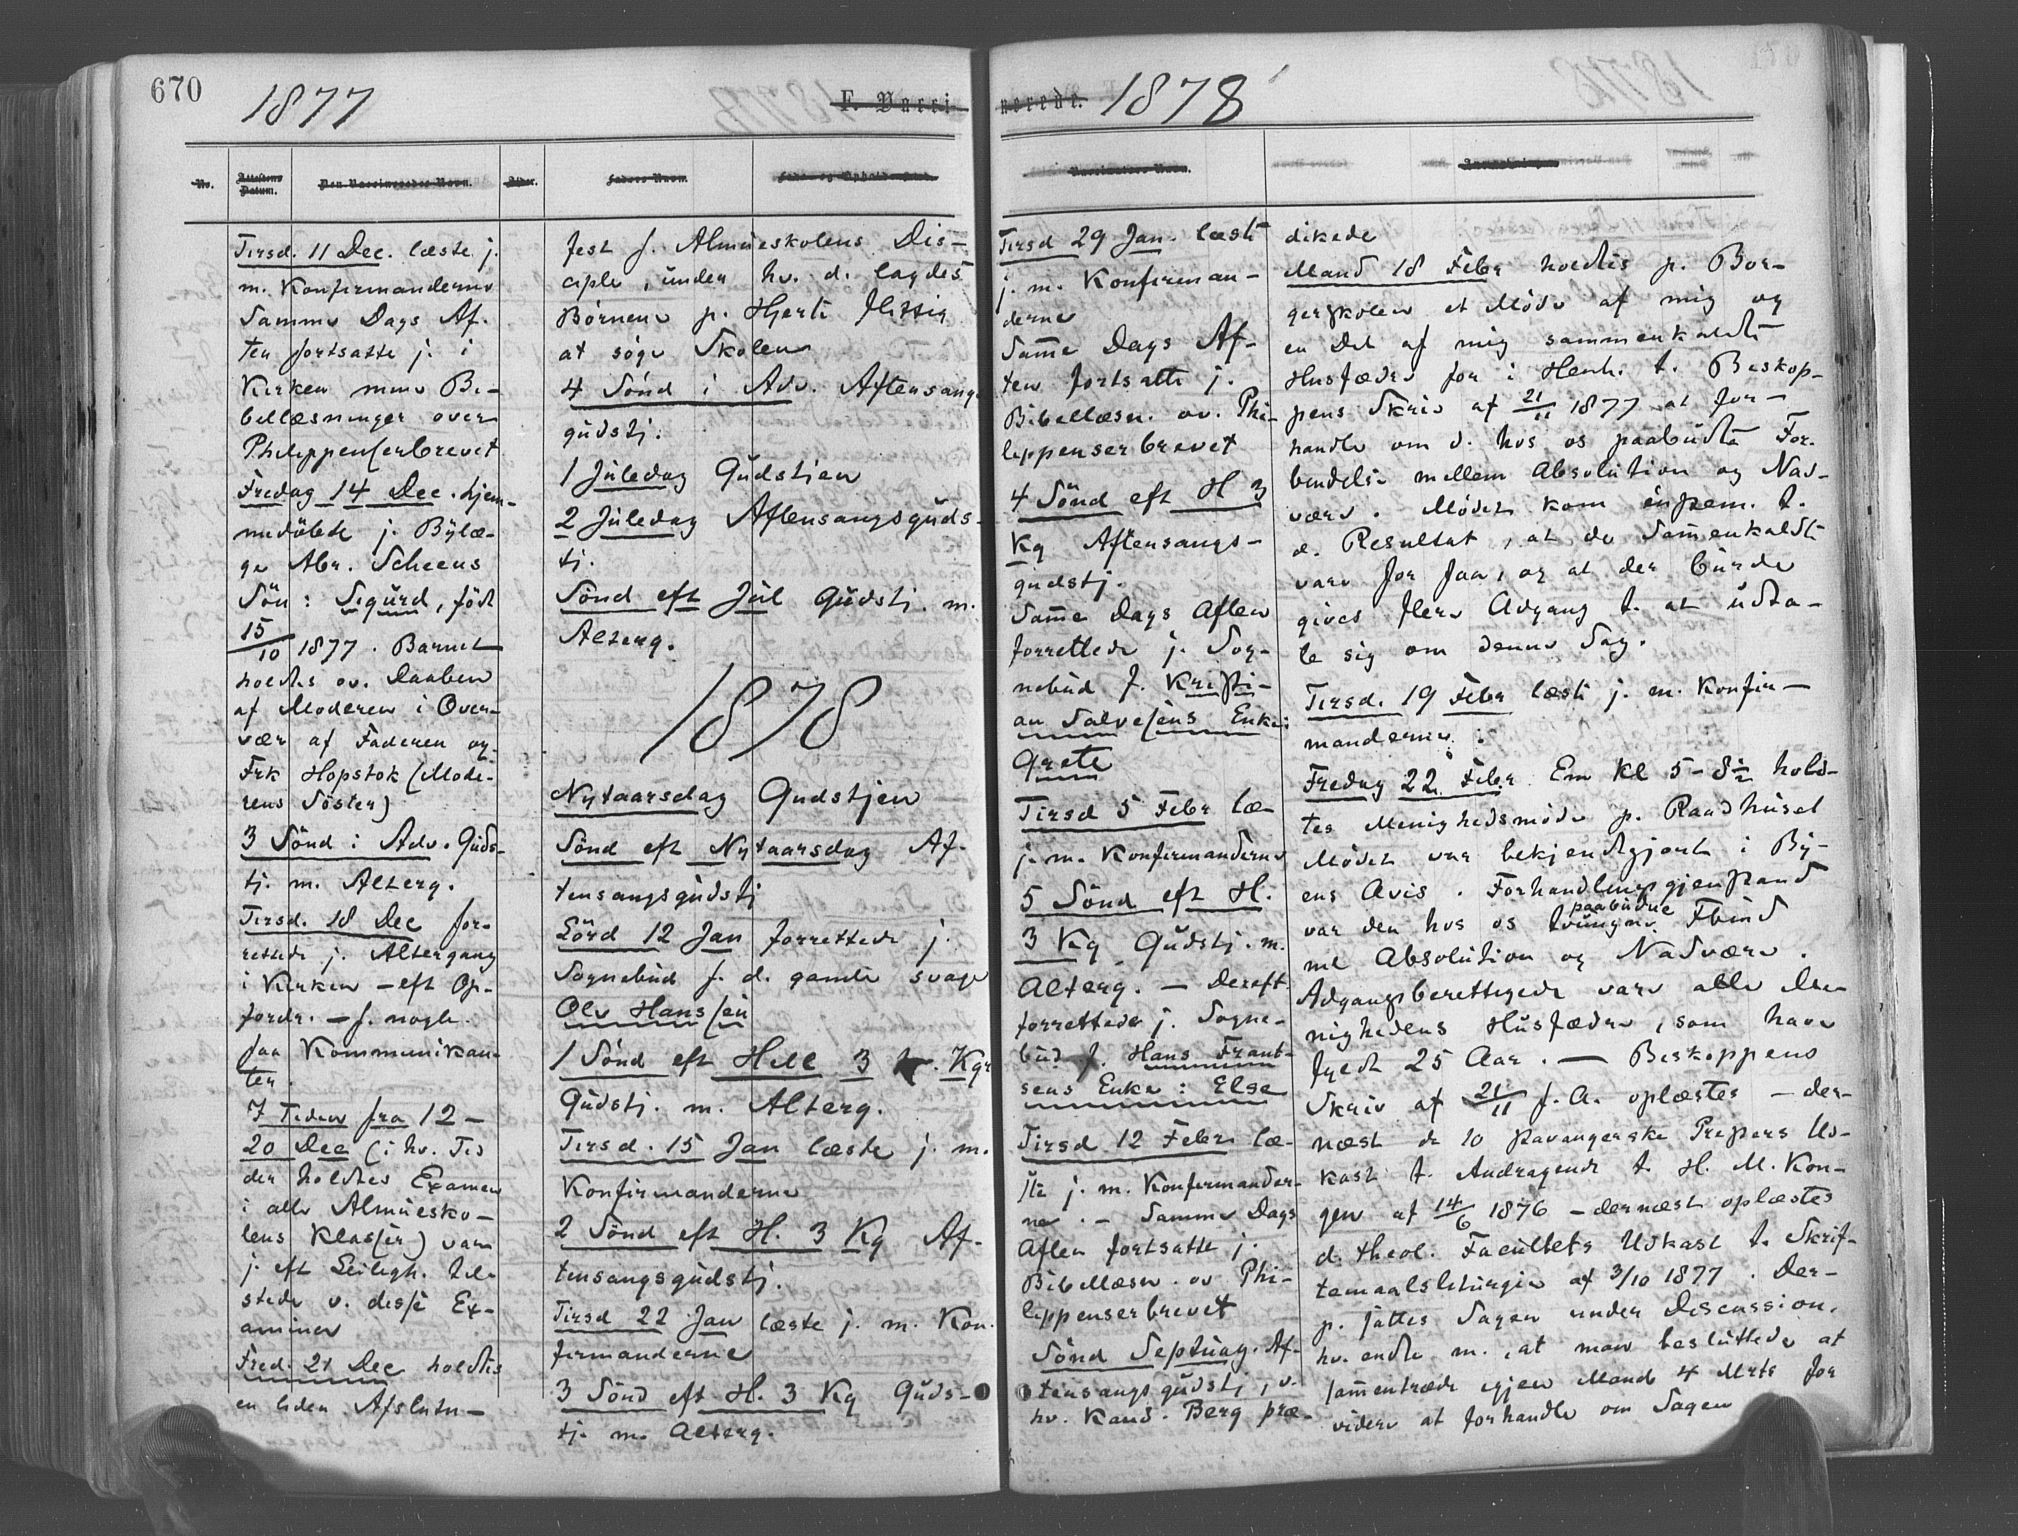 670
1877
F. Vacci
No.
Attestens Datum.
Den Vaccineredes Navn.
Alder.
Faders Navn.
Tirsd. 11 Dec. læste j.
m. Konfirmanderne
Samme Dags Af-
ten fortsatte j. i
Kirken mine Bi-
bellæsninger over
Philippenserbrevet
Fredag 14 Dec. hjem-
medöbte j. Bylæ-
ge Abr. Scheens
Sön: Sigurd, födt
15/10 1877. Barnet
holdtes ov. Daaben
af Moderen i Over-
vær af Faderen og
Frk Hopstok (Mode-
rens Söster)
3 Sönd i Adv. Guds-
tj. m. Alterg.
Tirsd. 18 Dec for-
rettede j. Altergang
i Kirken – eft Op-
fordr. – f. nogle
faa Kommunikan-
ter.
I Tiden fra 12 –
20 Dec (i hv. Tid
der holdtes Examen
i alle Almuesko-
lens Klasser) var
j. eft Leiligh. til-
stede v. disse Ex-
aminer
Fred. 21 Dec holdtes
en liden Afslutn-
fest f. Almueskolens Dis-
ciple, under hv. d. lagdes
Börnene p. Hjerte flittig
at söge Skolen
4 Sönd i Adv. Aftensangs-
gudstj.
1 Juledag Gudstjen
2 Juledag Aftensangsguds-
tj.
Sönd eft Jul Gudstj. m.
Alterg.
1878
Nytaarsdag Gudstjen
Sönd eft Nytaarsdag Af-
tensangsgudstj
Lörd 12 Jan forrettede j.
Sognebud f. d. gamle svage
Ole Hanssen
1 Sönd eft Hell 3 Kgr
Gudstj. m. Alterg.
Tirsd. 15 Jan læste j. m.
Konfirmanderne
2 Sönd eft H. 3 Kg Af-
tensangsgudstj.
Tirsd 22 Jan læste j. m. Kon-
firmanderne
3 Sönd eft H. 3 Kg Guds-
tj. m. Alterg.
nerede.
1878
Vaccinators Navn.
Anmerkninger
Tirsd 29 Jan. læste
j. m. Konfirman-
derne
Samme Dags Af-
ten fortsatte j.
Bibellæsn. ov. Phi-
lippenserbrevet
4 Sönd eft H 3
Kg Aftensangs-
gudstj.
Samme Dags Aften
forrettede j. Sog-
nebud f. Kristi-
an Salvesens Enke:
Grete
Tirsd 5 Febr læ-
j. m. Konfirmanderne
5 Sönd eft H.
3 Kg Gudstj. m.
Alterg. – Dereft.
forrettede j. Sogne-
bud f. Hans Frant-
sens Enke: Else
Tirsd 12 Febr læ-
ste j. m. Konfirmander-
ne. – Samme Dags
Aften fortsatte j.
Bibellæsn. ov Phi-
lippenserbrevet
Sönd Septuag. Af-
tensangsgudstj, v.
hv. Kand. Berg præ-
dikede
Mand 18 Febr holdtes p. Bor-
gerskolen et Möde af mig og
en Del af mig sammenkaldte
Husfædre for i Henh. t. Biskop-
pens Skriv af 21/11 1877 at for-
handle om d. hos os paabudte For-
bindelse mellem Absolution og Nad-
vere. Mödet kom enstem. t.
d. Resultat, at de Sammenkaldte
vare for faa, og at der burde
gives flere Adgang t. at udta-
le sig om denne Sag.
Tirsd. 19 Febr læste j. m. Konfir-
manderne.
Fredag 22 Febr Em Kl 5 – 8½ hold-
tes Menighedsmöde p. Raadhuset
Mödet var bekjendtgjort i By-
ens Avis. Forhandlingsgjenstand
paabudne
var den hos os tvungne Fbind
ml Absolution og Nadvere.
Adgangsberettigede vare alle Me-
nighedens Husfædre, som have
fyldt 25 Aar. – Biskoppens
Skriv af 21/11 f. A. oplæstes – der-
næst de 10 stavangerske Presters Ud-
kast t. Andragende t. H. M. Kon-
gen af 14/6 1876 – dernæst oplæstes
d. theol. Facultets Udkast t. Skrif-
temaalsliturgie af 3/10 1877. Der-
p. sattes Sagen under Discussion,
hv. endte m., at man besluttede at
sammentræde igjen Mand 4 Mrts for
videre at forhandle om Sagen